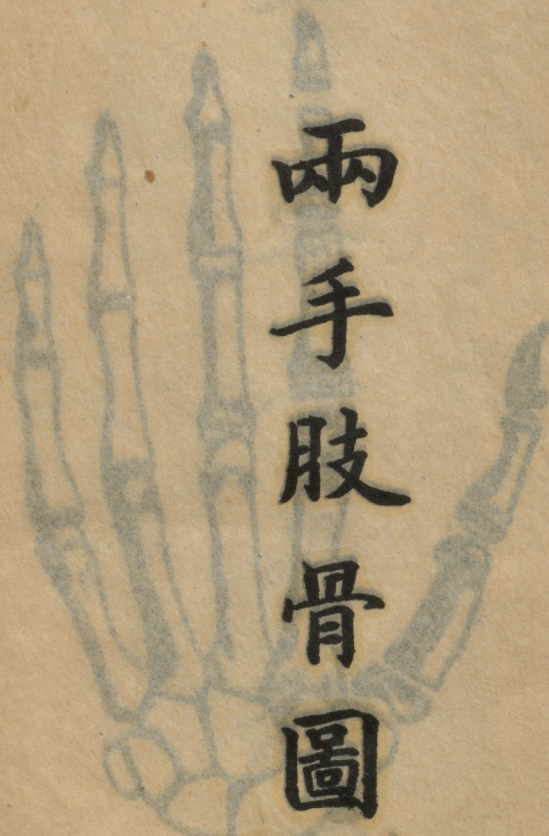 兩手肢骨圖